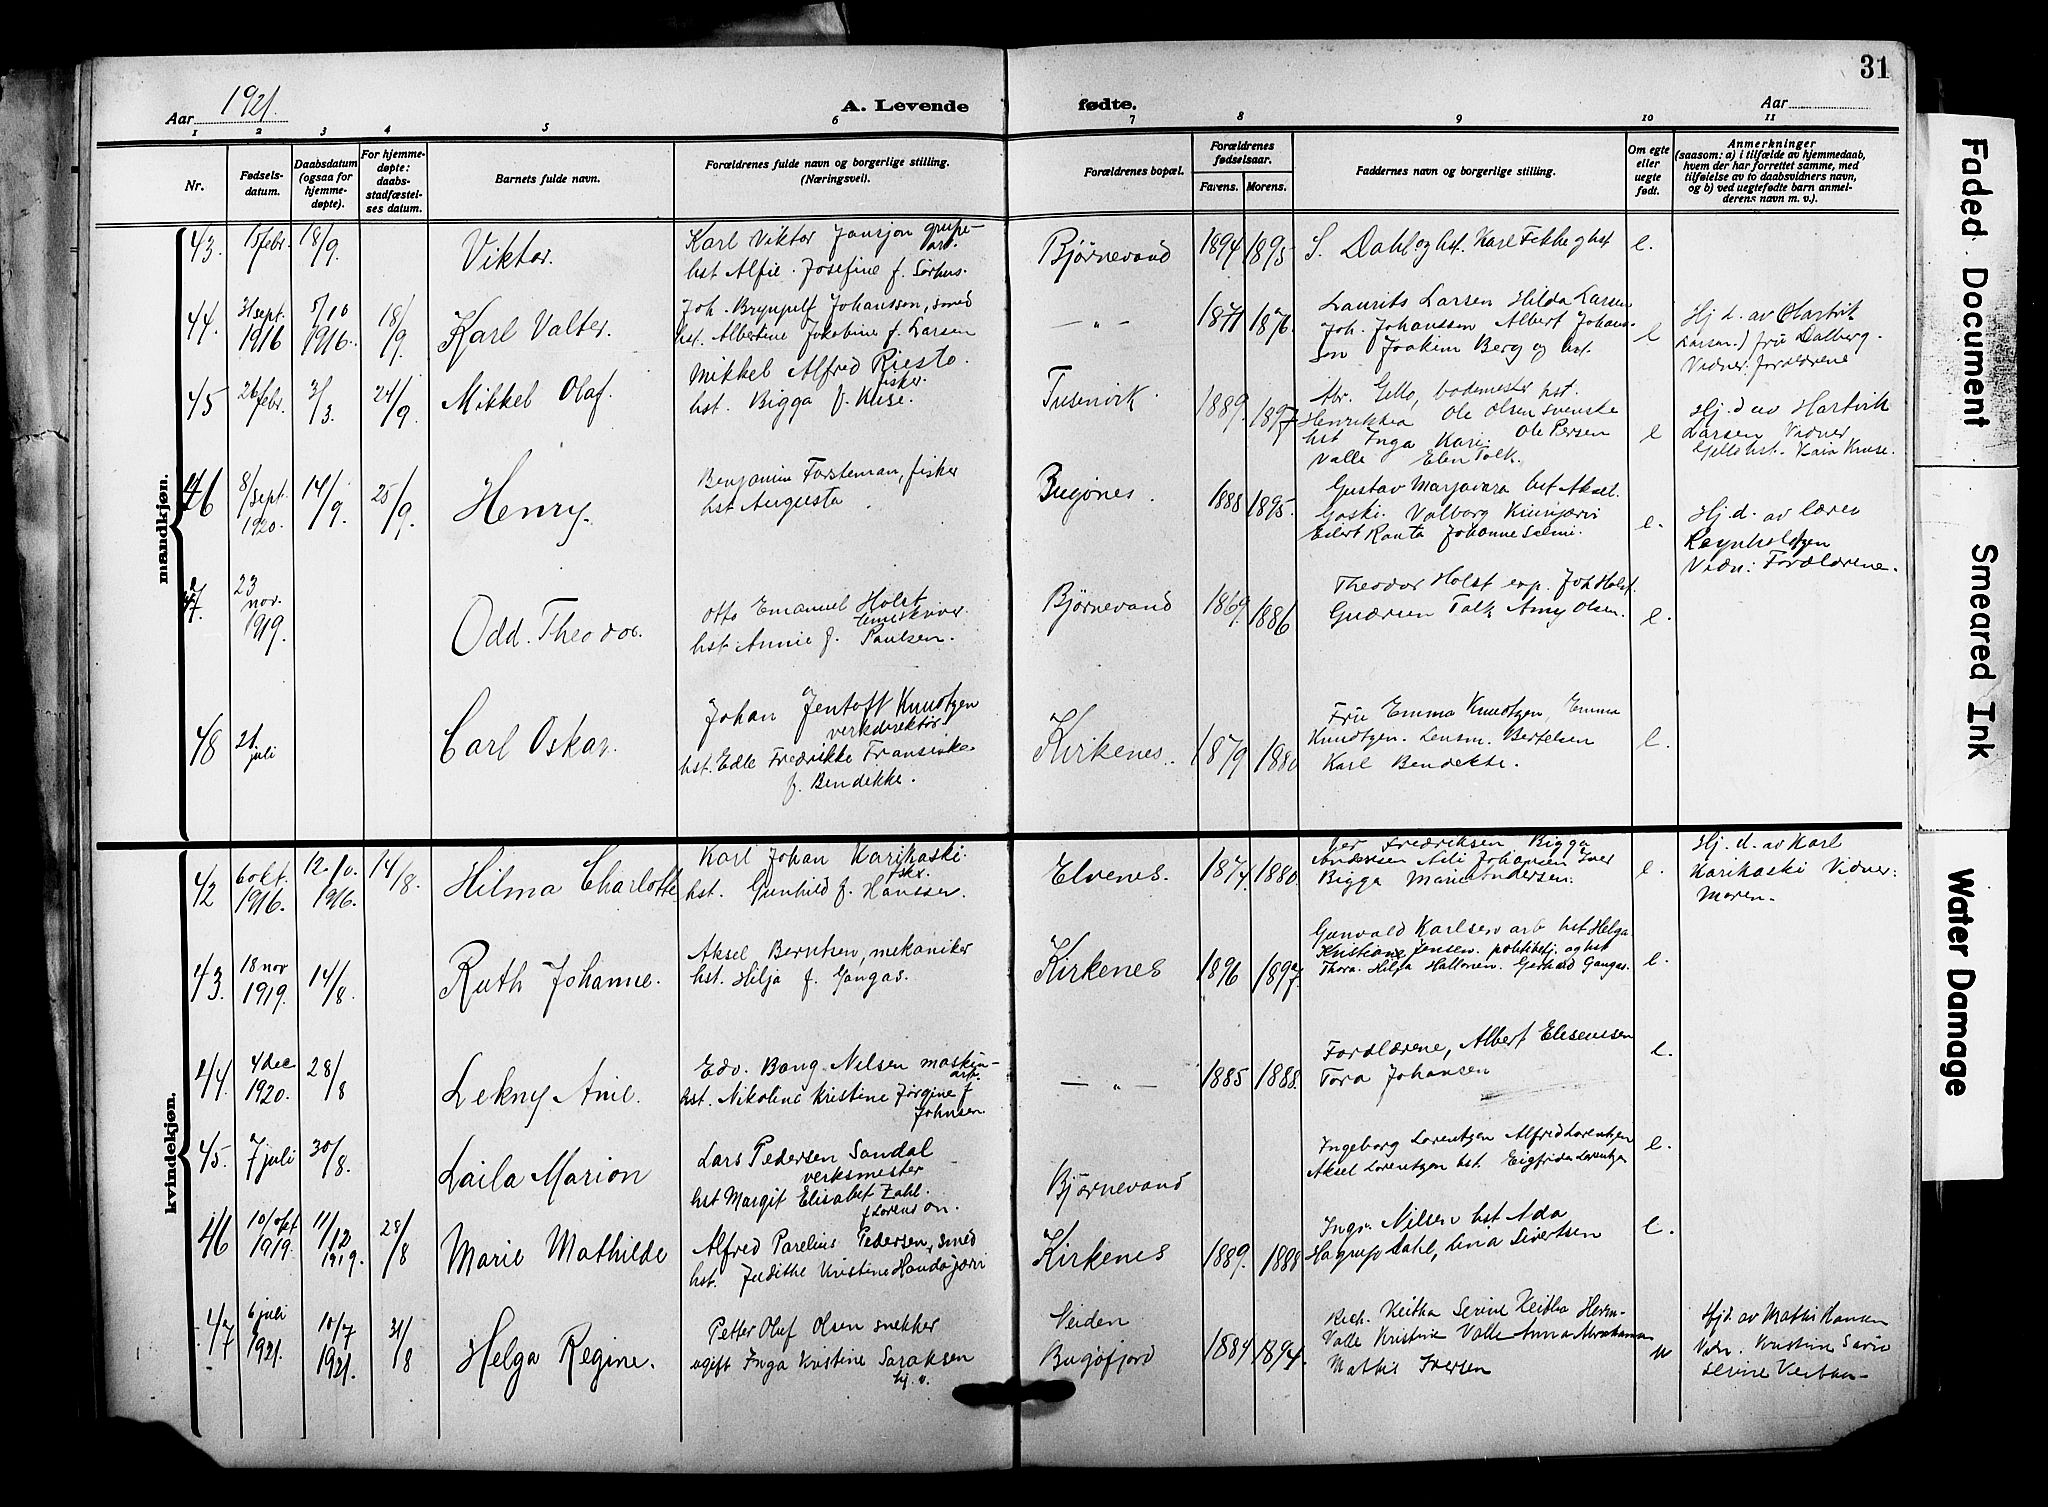 31
Aar 1921.
A. Levende fødte.
Aar
1 2 3 4 5 6 7 8 9 10 11
Nr.
Fødsels-
datum.
Daabsdatum
(ogsaa for
hjemme-
døpte).
For hjemme-
døpte:
daabs-
stadfæstel-
ses datum.
Barnets fulde navn.
Forældrenes fulde navn og borgerlige stilling.
(Næringsvei).
Forældrenes bopæl.
Forældrenes
fødselsaar.
Farens. Morens.
Faddernes navn og borgerlige stilling.
Om egte
eller
uegte
født.
Anmerkninger
(saasom: a) i tilfælde av hjemmedaab,
hvem der har forrettet samme, med
tilføielse av to daabsvidners navn,
og b) ved uegtefødte barn anmel-
derens navn m. v.).
mandkjøn.
43. 15 febr. 18/9. Viktor.
Karl Viktor Jansjon grube-
arb.
hst Alfie. Josefine f. Sørhus.
Bjørnevand 1894 1895 S. Dahl og hst. Karl Fikke og hst e.
44. 31 sept. 1916 5/10 1916. 18/9. Karl Valter.
Joh. Brynpelf Johanssen, smed
hst. Albertine Jakobine f. Larsen
— „ — 1871 1876.
Laurits Larsen Hilda Larsen
Joh. Johanssen Albert Johans-
sen Joakim Berg og hst. e
Hj d. av Hartvik
Larsen) fru Dalberg.
Vidner: forældrene
45 26 febr. 3/3. 24/9. Mikkel Olaf.
Mikkel Alfred Riesto.
fisker.
hst. Bigga f. Kruse.
Tusenvik. 1889. 1897
Abr. Gello, bademester hst.
Henrikka Ole Olsen svenske
hst Inga Kari. Ole Persen
Valle Elen Talk. e
Hj. d av Hartvik
Larsen Vidner
Gello hst. Kaia Kruse.
46 8/sept. 1920. 14/9. 25/9. Henry.
Benjamin Forsteman, fisker
hst Augusta
Bugønes. 1888 1895.
Gustav Marjavara hst Aksel.
Goski. Valborg Kinnjærvi
Eilert Ranta Johanne Salmi. e.
Hj. d. av lærer
Reynholdtzen
Vidn: Forældrene.
47. 23 nov. 1919. Odd. Theodor.
Otto Emanuel Holst
hst Annie f. Paulsen.
Bjørnevand 1869. 1886
Theodor Holst exp. Joh Holst.
Gudrun Talk Amy Olsen. e.
48 21 juli Carl Oskar.
Johan Jentoft Knudtzen
verkdirektør
hst. Edle Fredrikke Fransiske
f. Bendekke.
Kirkenes. 1879 1880
Fru Emma Knudtzen, Emma
Knudtzen. Lensm. Bertelsen
Karl Bendekke. e.
kvindekjøn.
42 6 okt. 1916. 12/10. 1916. 14/8. Hilma Charlotte
Karl Johan Karikaski.
fskr.
hst. Gunhild f. Hanssen.
Elvenes. 1874 1880.
Per Fredriksen Bigga
Andersen Nili Johansen Iver
Bigga Marie Andersen. e.
Hj. d. av Karl
Karikaski Vidner:
Moren.
43. 18 nov 1919. 14/8. Ruth Johanne.
Aksel Berntsen, mekaniker
hst. Hilja f. Gangas.
Kirkenes 1896 1897.
Gunvald Karlsen arb hst Helga
Kristiane Jensen. politibetj. og hst
Thora. Hilja Hallonen. Gerhard Gangas. e.
44. 4 dec 1920. 28/8 Lekny Anie.
Edv. Bang. Nilsen maskin-
arb.
hst. Nikoline Kristine Jørgine f
Johnsen
— „ — 1885 1888.
Forældrene, Albert Elisenssen
Tora Johansen e.
45. 7 juli 30/8. Laila Marion
Lars Pedersen Sandal
verksmester
hst Margit Elisabet Zahl.
f Lorens on.
Bjørnevand
Ingeborg Lorentzen Alfred Lorentzen
Aksel Lorentzen hst. Eigfrida Lorentzen e.
46 10/okt 1919. 11/12 1919. 28/8 Marie Mathilde
Alfred Parelius Pedersen, smed
hst. Judithe Kristine Handøjærvi
Kirkenes 1889. 1888
Ingv. Nilsen hst Ada
Hagrup Dahl, Lina Sivertsen e.
47 6 juli 1921. 10/7 1921. 31/8 Helga Regine.
Petter Oluf Olsen snekker
ugift Inga Kristine Saraksen
hj. v.
Neiden
Bugøfjord 1884 1894.
Rich. Keitha Serine Keitha Herm-
Valle Kristine Valle Anna Abrahamsen
Mathis Iversen u
Hjd. av Mathis Hansen
Vidn. Kristine
Serine
Faded Document
Smeared Ink
Water Damage